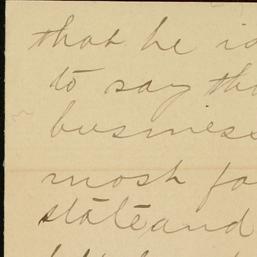 that he is
to say th
business
most fo
state and